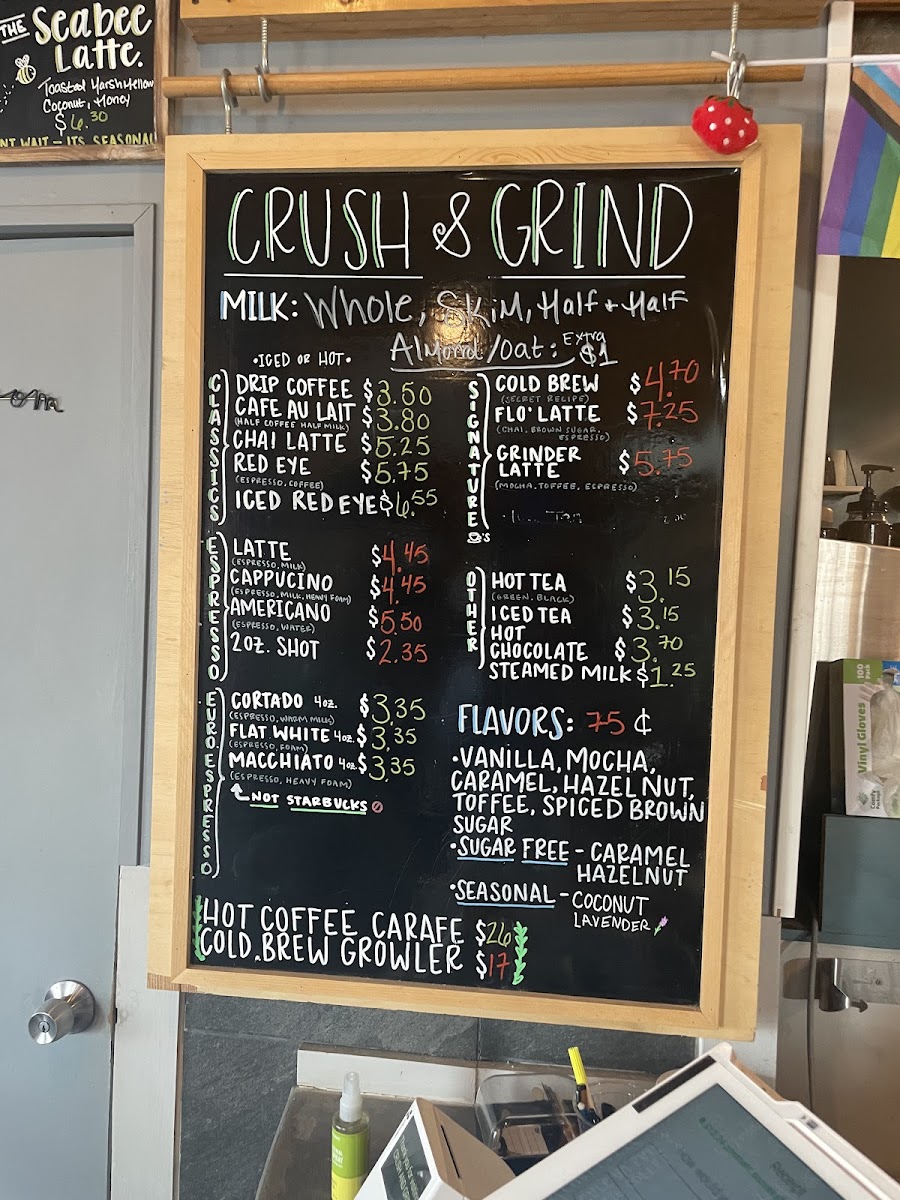 THE Seabee
Latte.
Toasted Marshmellow
Coconut, Honey
$6.30
NT WAIT - ITS SEASONAL
CRUSH & GRIND
MILK: Whole, Skim, Half + Half
Almond/Oat: Extra $1
•ICED OR HOT•
CLASSICS
DRIP COFFEE $3.50
CAFE AU LAIT $3.80
(HALF COFFEE HALF MILK)
CHAI LATTE $5.25
RED EYE $5.75
(ESPRESSO, COFFEE)
ICED RED EYE $6.55
ESPRESSO
LATTE $4.45
(ESPRESSO, MILK)
CAPPUCINO $4.45
(ESPRESSO, MILK, HEAVY FOAM)
AMERICANO $5.50
(ESPRESSO, WATER)
2OZ. SHOT $2.35
EURO ESPRESSO
CORTADO 4oz. $3.35
(ESPRESSO, WARM MILK)
FLAT WHITE 4oz. $3.35
(ESPRESSO, FOAM)
MACCHIATO 4oz. $3.35
(ESPRESSO, HEAVY FOAM)
NOT STARBUCKS
SIGNATURE 'S
COLD BREW $4.70
(SECRET RECIPE)
FLO' LATTE $7.25
(CHAI, BROWN SUGAR,
ESPRESSO)
GRINDER
LATTE $5.75
(MOCHA, TOFFEE, ESPRESSO)
OTHER
HOT TEA $3.15
(GREEN, BLACK)
ICED TEA $3.15
HOT
CHOCOLATE $3.70
STEAMED MILK $1.25
FLAVORS: 75¢
•VANILLA, MOCHA,
CARAMEL, HAZELNUT,
TOFFEE, SPICED BROWN
SUGAR
•SUGAR FREE - CARAMEL
HAZELNUT
•SEASONAL - COCONUT
LAVENDER
HOT COFFEE CARAFE $26
COLD BREW GROWLER $17
100
Pack
Vinyl Gloves